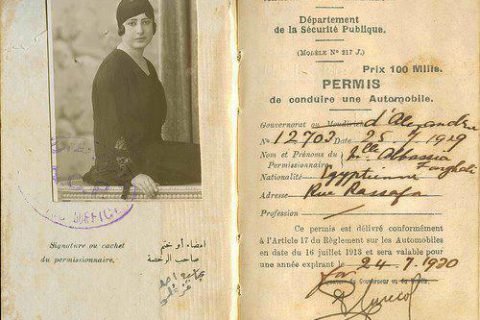 Département
de la Sécurité Publique.
(MODÈLE Nº 217 J.)
Prix 100 Mills.
PERMIS
de conduire une Automobile.
Gouvernorat ou Moudirieh d'Alexandrie
Nº 12703 Date 25 7 1929
Nom et Prénoms du Mlle Abassia
Permissionnaire. Farghali
Nationalité Egyptienne
Adresse Rue Rassafa
Profession
Ce permis est délivré conformément
à l'Article 17 du Règlement sur les Automobiles
en date du 16 juillet 1913 et sera valable pour
une année expirant le 24.7.1930
Signature ou cachet
du permissionnaire.
امضاء أو ختم
صاحب الرخصة